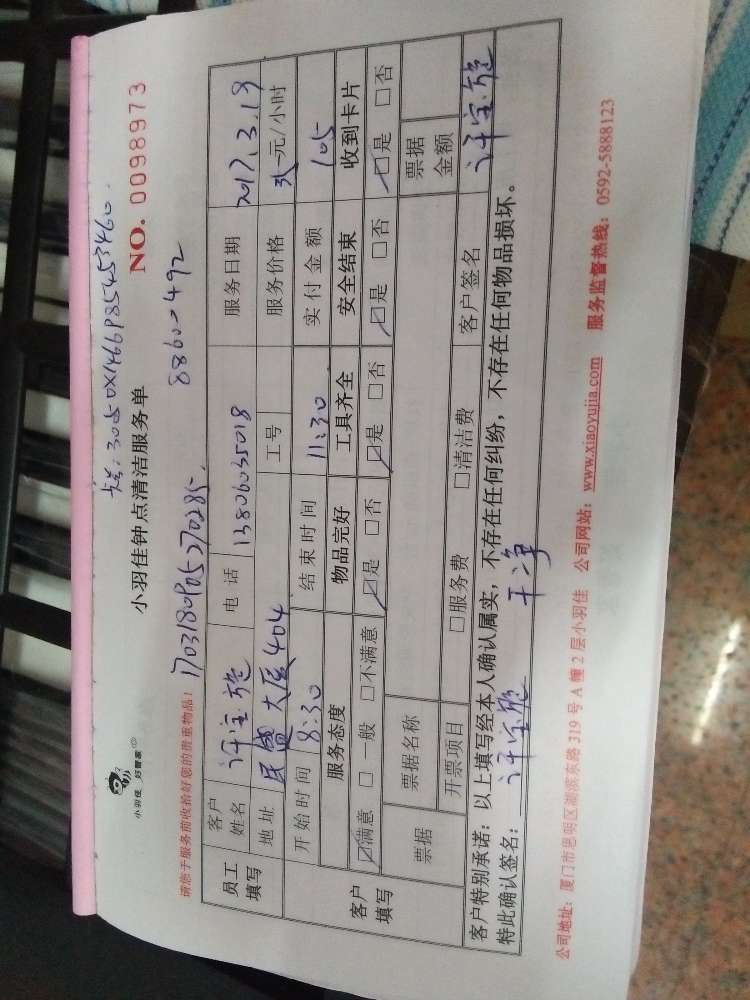 小羽佳钟点清洁服务单
NO. 0098973
小羽佳 好管家
请您于服务前收拾好您的贵重物品!
员工填写 客户姓名 许宝旋 电话 13806035018 服务日期 2017.3.19
地址 大厦404 工号 服务价格 元/小时
客户填写 开始时间 8:30 结束时间 11:30 实付金额 105
服务态度 物品完好 工具齐全 安全结束 收到卡片
☑满意 □一般 □不满意 ☑是 □否 ☑是 □否 ☑是 □否 ☑是 □否
票据 票据名称 票据金额
开票项目 □服务费 □清洁费 客户签名 许宝旋
客户特别承诺:以上填写经本人确认属实,不存在任何纠纷,不存在任何物品损坏。
特此确认签名: 许宝旋 干净
公司地址:厦门市思明区湖滨东路319号A幢2层小羽佳 公司网站:www.xiaoyujia.com 服务监督热线:0592-5888123